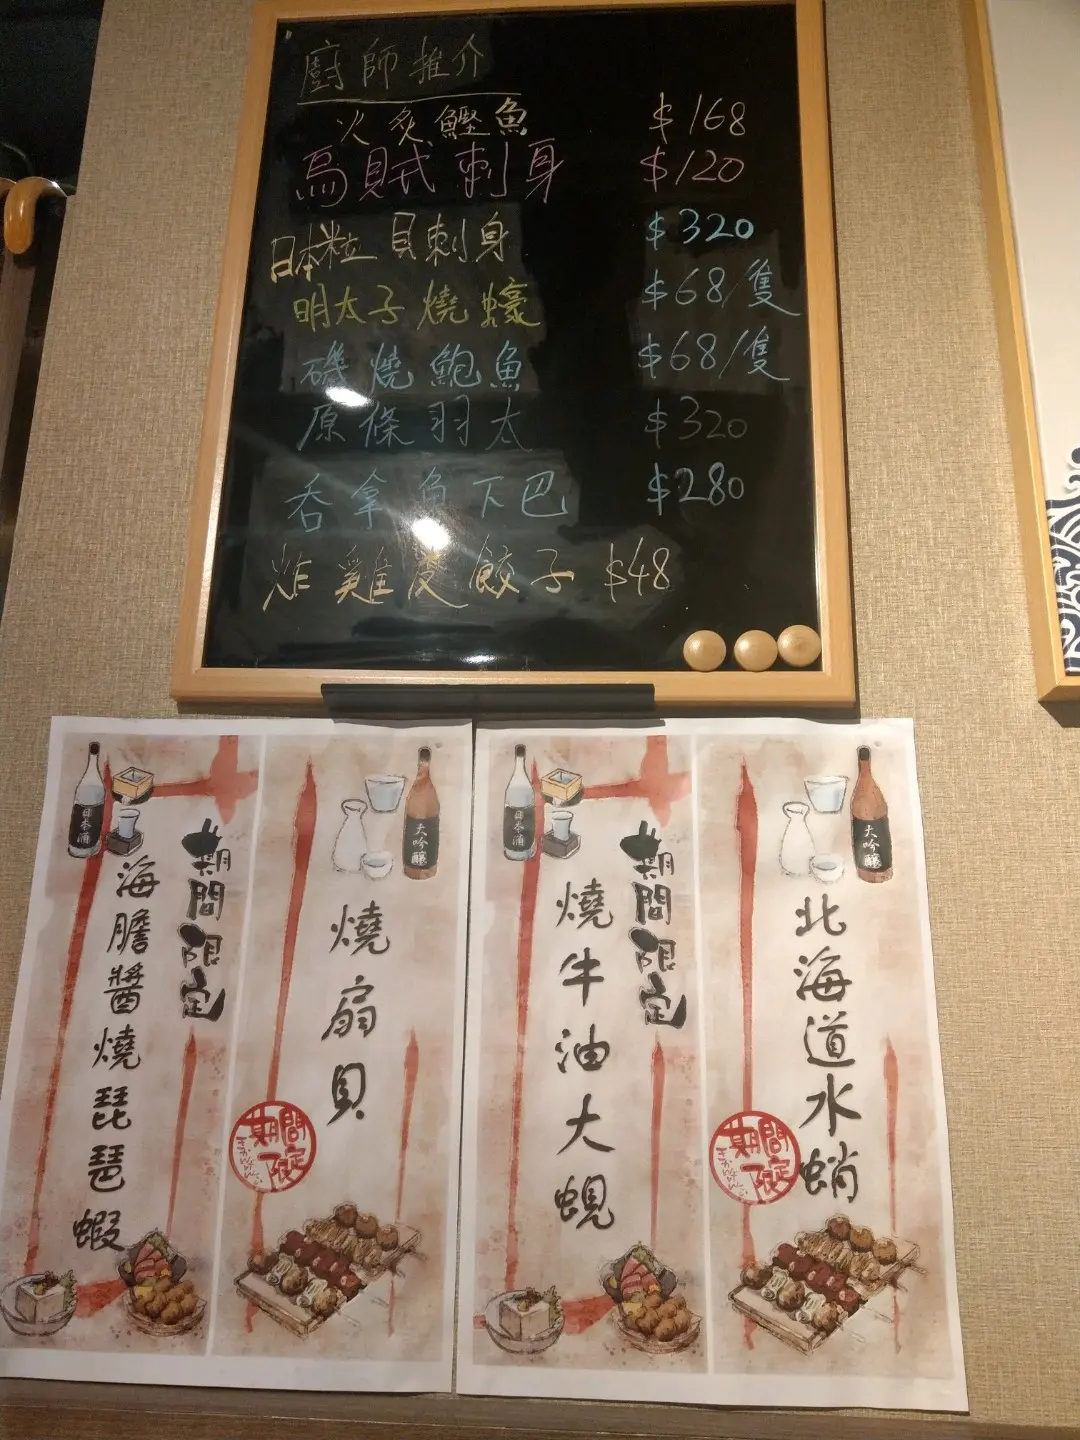 廚師推介
火炙鰹魚 $168
烏賊刺身 $120
日本粒貝刺身 $320
明太子燒蠔 $68/隻
磯燒鮑魚 $68/隻
原條羽太 $320
吞拿魚下巴 $280
炸雞皮餃子 $48
日本酒
期間限定
海膽醬燒琵琶蝦
大吟釀
燒扇貝
期間限定
日本酒
期間限定
燒牛油大蜆
大吟釀
北海道水蛸
期間限定